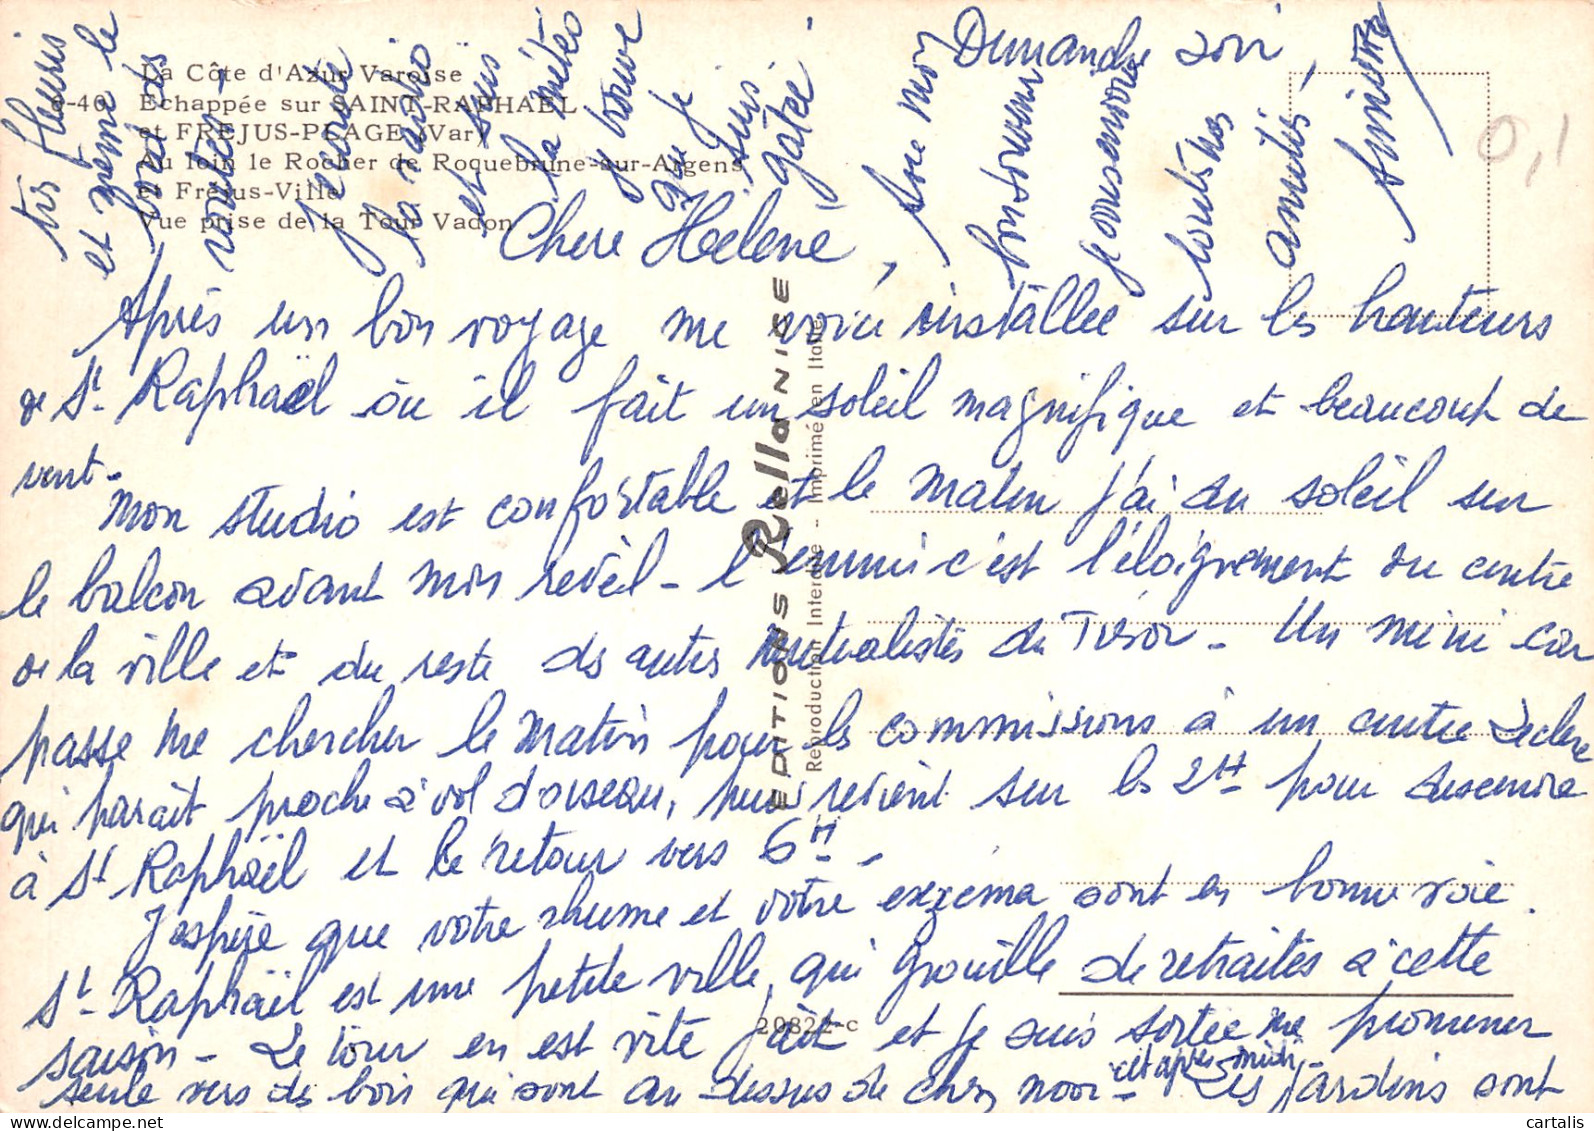 La Côte d'Azur Varoise
6-40 Echappée sur SAINT-RAPHAEL
et FREJUS-PLAGE (Var)
Au loin le Rocher de Roquebrune-sur-Argens
et Fréjus-Ville
Vue prise de la Tour Vadon
EDITIONS Rella NICE
Reproduction Interdite - Imprimé en Italie
20822-c
0,1
Dimanche soir,
Chère Hélène,
Après un bon voyage me voici installée sur les hauteurs
de St. Raphaël où il fait un soleil magnifique et beaucoup de
vent.
Mon studio est confortable et le matin j'ai du soleil sur
le balcon avant mon réveil - l'ennui c'est l'éloignement du centre
de la ville et du reste des autres mutualistes du Trésor - Un mini car
passe me chercher le matin pour les commissions à un centre Leclerc
qui paraît proche à vol d'oiseau, puis revient sur les 2H pour descendre
à St Raphaël et le retour vers 6H -
J'espère que votre rhume et votre eczéma sont en bonne voie.
St. Raphaël est une petite ville, qui grouille de retraités à cette
saison - Le tour en est vite fait et je suis sortie me promener
seule vers des bois qui sont au dessus de chez moi cet après-midi - Les jardins sont
très fleuris
et même le
bord des
routes -
Je regarde
la météo
et suis
y trouve
que je
suis
gâtée
Avec mon
bon souvenir
toutes mes
amitiés